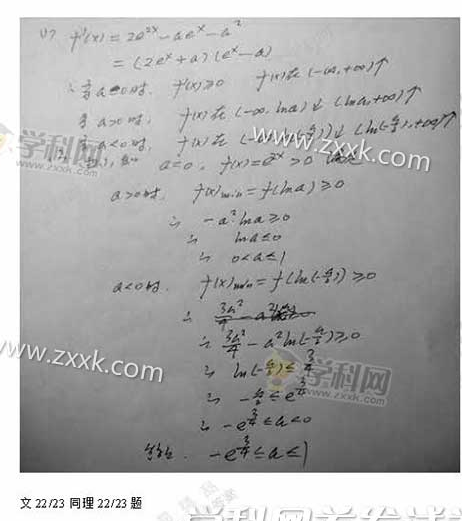 (1) f'(x) = 2e^{2x} - ae^x - a^2
= (2e^x + a)(e^x - a)
∴ 当 a=0 时, f'(x)≥0 f(x)在(-∞,+∞)↑
当 a>0 时, f(x)在(-∞, lna)↓ (lna,+∞)↑
当 a<0 时, f(x)在(-∞, ln(-a/2))↓ (ln(-a/2),+∞)↑
a=0, f(x)=e^{2x}>0
a>0时, f(x)min=f(lna)≥0
∴ -a^2lna≥0
∴ lna≤0
∴ 0<a≤1
a<0时. f(x)min=f(ln(-a/2))≥0
∴ 3a^2/4 - a^2ln(-a/2)≥0
∴ ln(-a/2)≤3/4
∴ -a/2≤e^{3/4}
∴ -e^{3/4}≤a<0
-e^{3/4}≤a≤1
学科网
www.zxxk.com
www.zxxk.com
学科网
文 22/23 同理 22/23 题